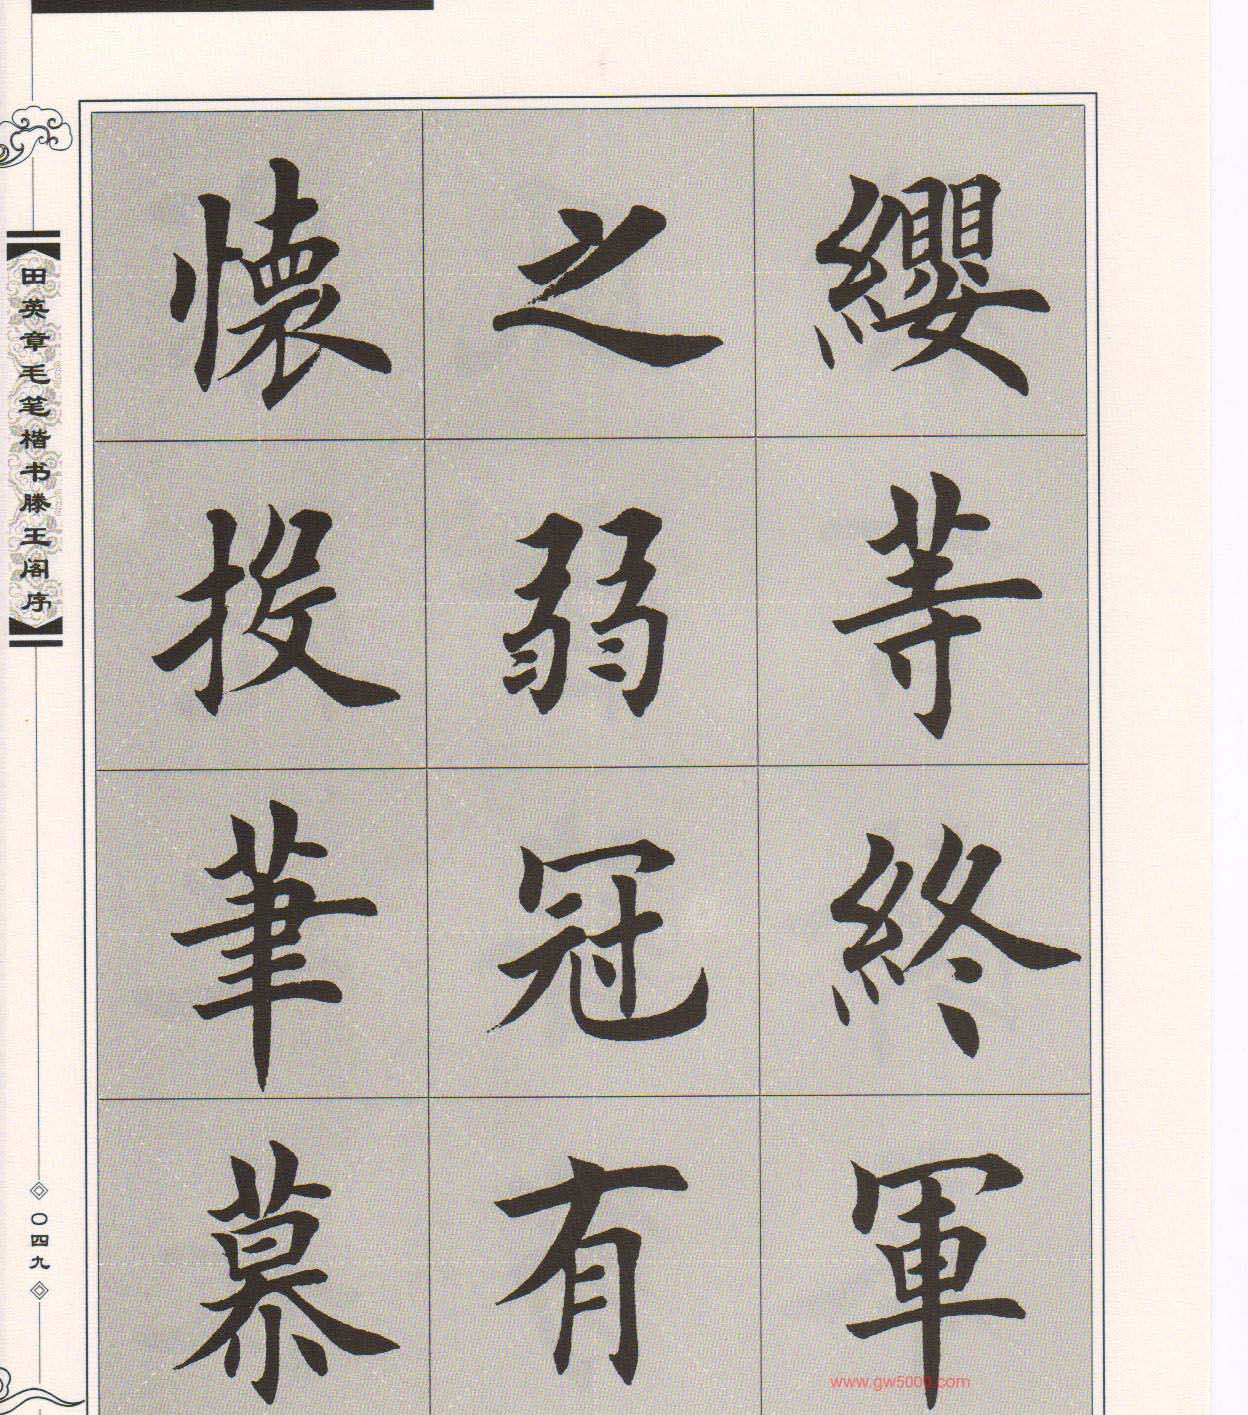 纓等終軍
之弱冠有
懷投筆慕
田英章毛笔楷书滕王阁序
〇四九
www.gw5000.com